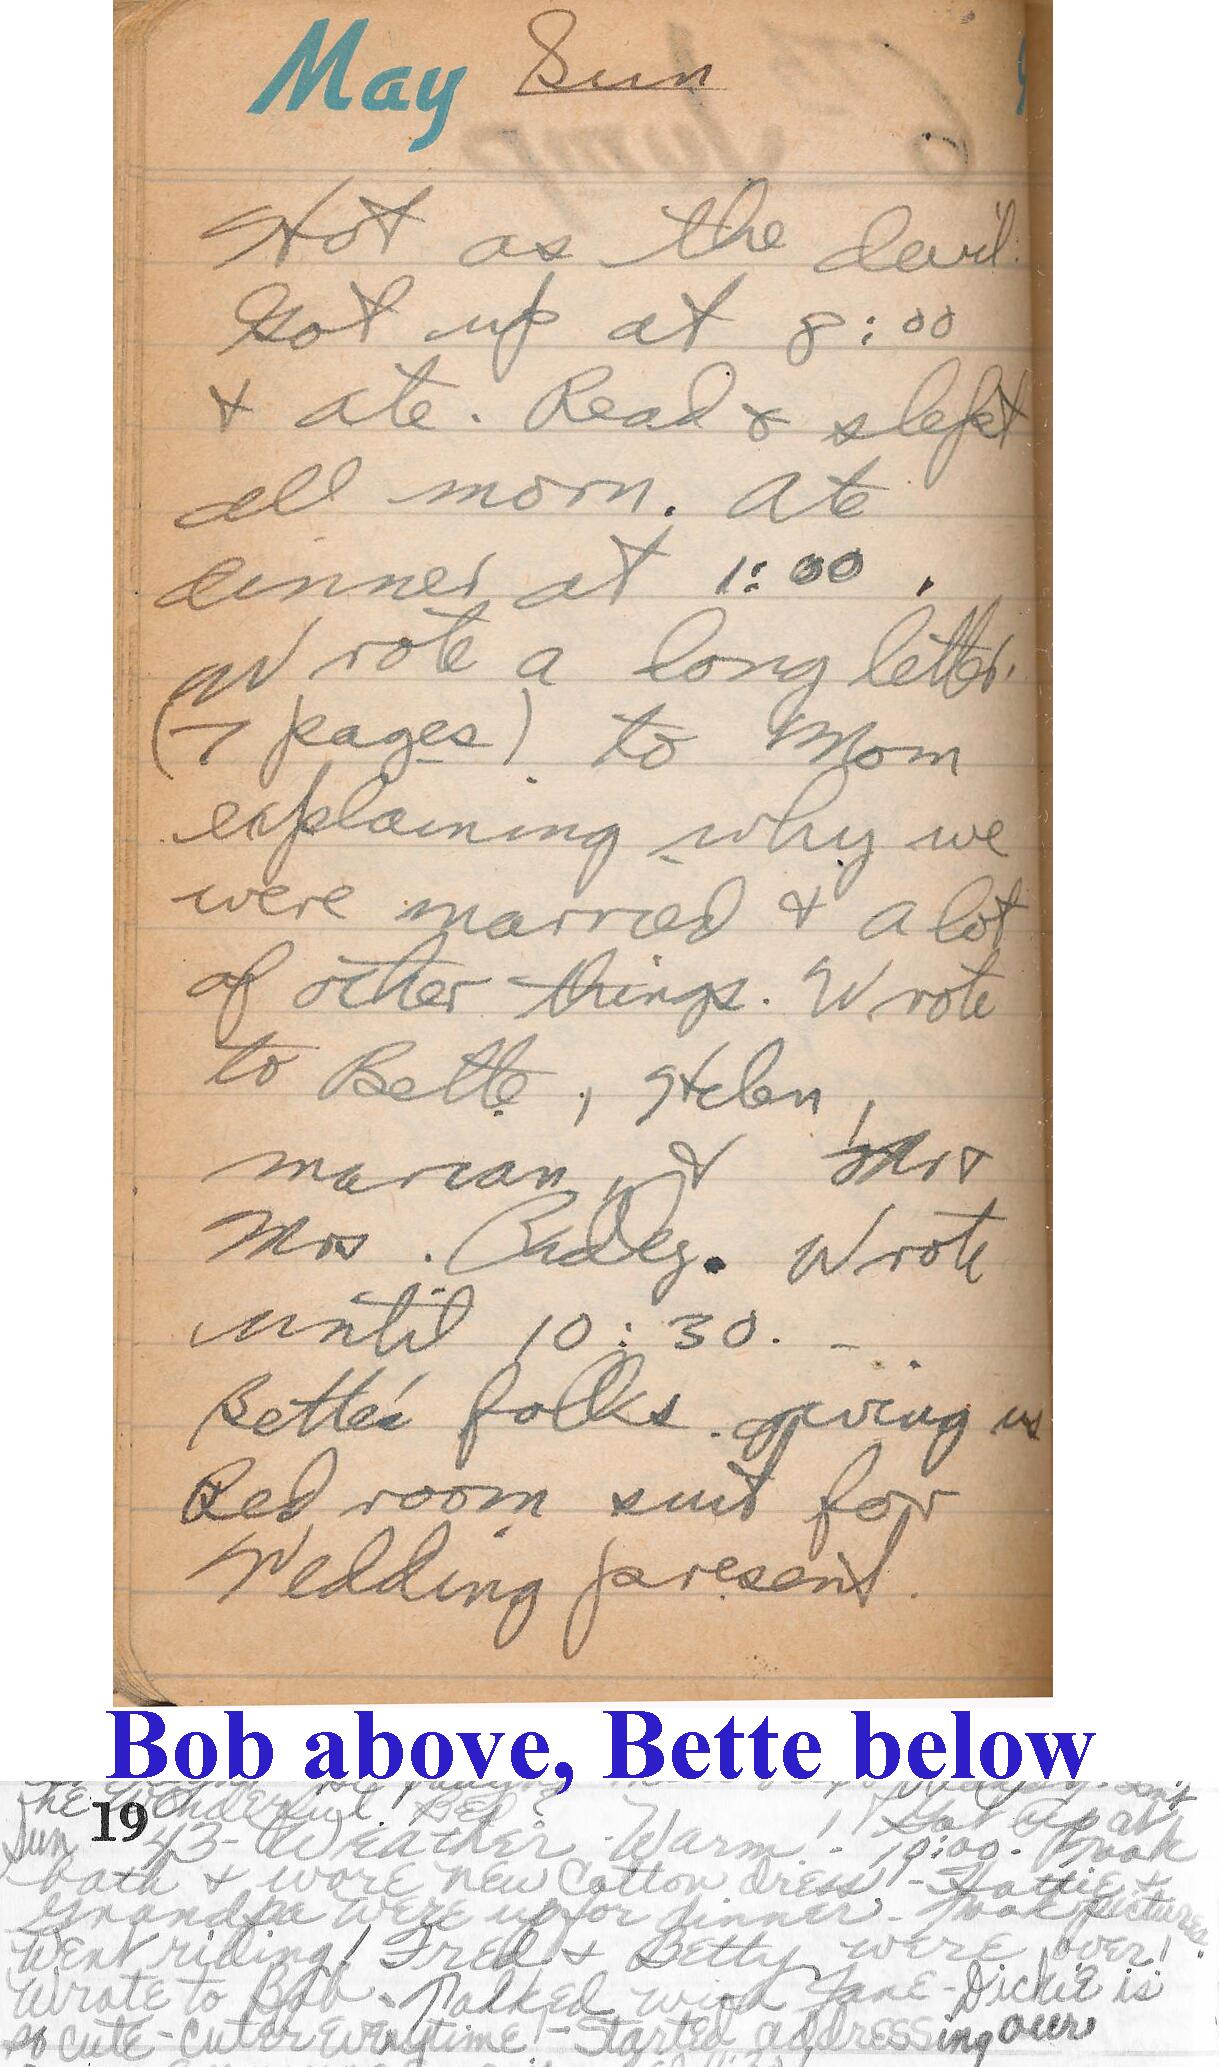 May Sun
Hot as the devil.
Got up at 8:00
& ate. Read & slept
all morn. Ate
dinner at 1:00.
Wrote a long letter
(7 pages) to Mom
explaining why we
were married & a lot
of other things. Wrote
to Bette, Helen,
Marian, & Mr &
Mrs. Wrote
until 10:30. -
Bette's folks giving us
Bed room suit for
Wedding present.
Bob above, Bette below
The Wonderful
Sun 19 43 - Weather - Warm - Got up at
10:00. Took
bath & wore new cotton dress - Hattie &
Grandpa were up for dinner - Took pictures.
Went riding! Fred & Betty were over!
Wrote to Bob. Talked with Jane - Dickie is
so cute - cuter everytime! - Started addressing our